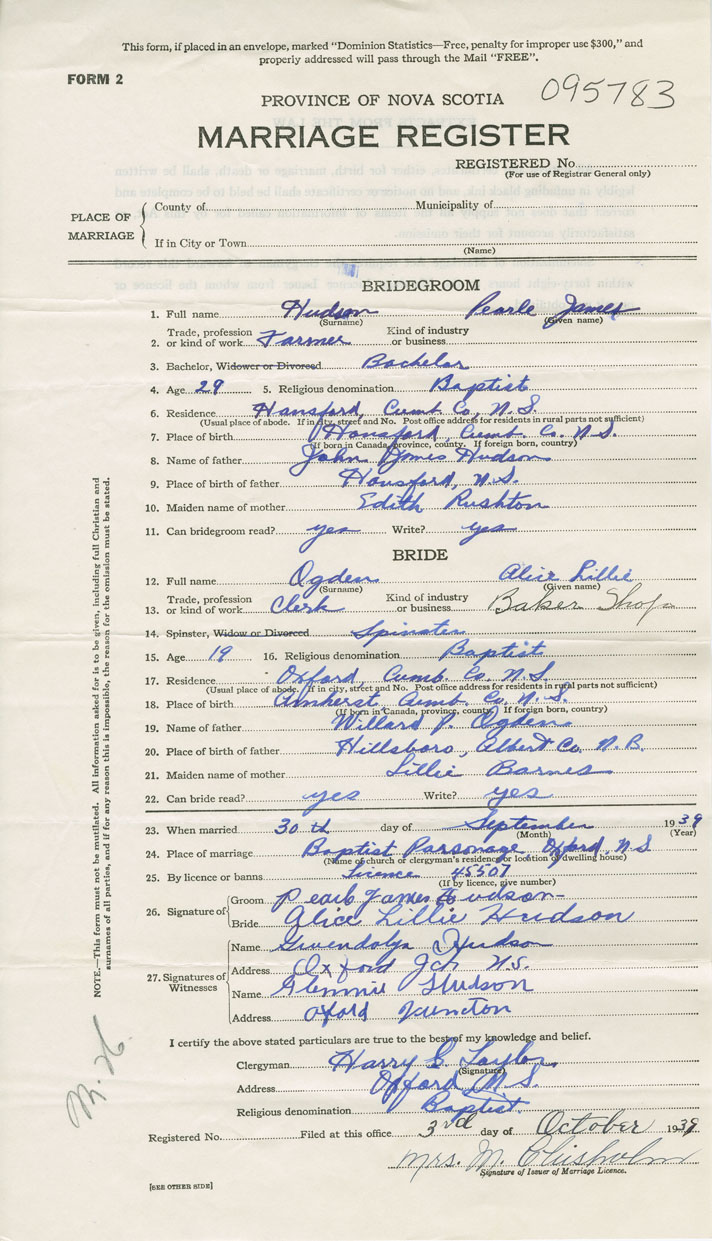 This form, if placed in an envelope, marked "Dominion Statistics—Free, penalty for improper use $300," and
properly addressed will pass through the Mail "FREE".
FORM 2
095783
PROVINCE OF NOVA SCOTIA
MARRIAGE REGISTER
REGISTERED No.
(For use of Registrar General only)
PLACE OF MARRIAGE
County of Municipality of
If in City or Town
(Name)
BRIDEGROOM
1. Full name Hudson Pearle James
(Surname) (Given name)
2. Trade, profession or kind of work Farmer Kind of industry or business
3. Bachelor, Widower or Divorced Bachelor
4. Age 29 5. Religious denomination Baptist
6. Residence Hansford, Cumb. Co. N.S.
(Usual place of abode. If in city, street and No. Post office address for residents in rural parts not sufficient)
7. Place of birth Hansford, Cumb. Co. N.S.
(If born in Canada, province, county. If foreign born, country)
8. Name of father John James Hudson
9. Place of birth of father Hansford, N.S.
10. Maiden name of mother Edith Rushton
11. Can bridegroom read? yes Write? yes
BRIDE
12. Full name Ogden Alice Lillie
(Surname) (Given name)
13. Trade, profession or kind of work Clerk Kind of industry or business Baker Shop
14. Spinster, Widow or Divorced Spinster
15. Age 19 16. Religious denomination Baptist
17. Residence Oxford, Cumb. Co. N.S.
(Usual place of abode. If in city, street and No. Post office address for residents in rural parts not sufficient)
18. Place of birth Amherst, Cumb. Co. N.S.
(If born in Canada, province, county. If foreign born, country)
19. Name of father Willard P. Ogden
20. Place of father Hillsboro, Albert Co. N.B.
21. Maiden name of mother Lillie Barnes
22. Can bride read? yes Write? yes
23. When married 30th day of September 1939
(Month) (Year)
24. Place of marriage Baptist Parsonage Oxford, N.S
(Name of church or clergyman's residence or location of dwelling house)
25. By licence or banns Licence 45507
(If by licence, give number)
26. Signature of
Groom Pearl James Hudson
Bride Alice Lillie Hudson
27. Signatures of Witnesses
Name Gwendolyn Hudson
Address Oxford Jct N.S.
Name Glennie Hudson
Address Oxford Junction
I certify the above stated particulars are true to the best of my knowledge and belief.
Clergyman Harry E. Taylor
(Signature)
Address Oxford N.S.
Religious denomination Baptist
Registered No. Filed at this office 3rd day of October 1939
Mrs. M. Chisholm
Signature of Issuer of Marriage Licence.
[SEE OTHER SIDE]
NOTE.—This form must not be mutilated. All information asked for is to be given, including full Christian and
surnames of all parties, and if for any reason this is impossible, the reason for the omission must be stated.